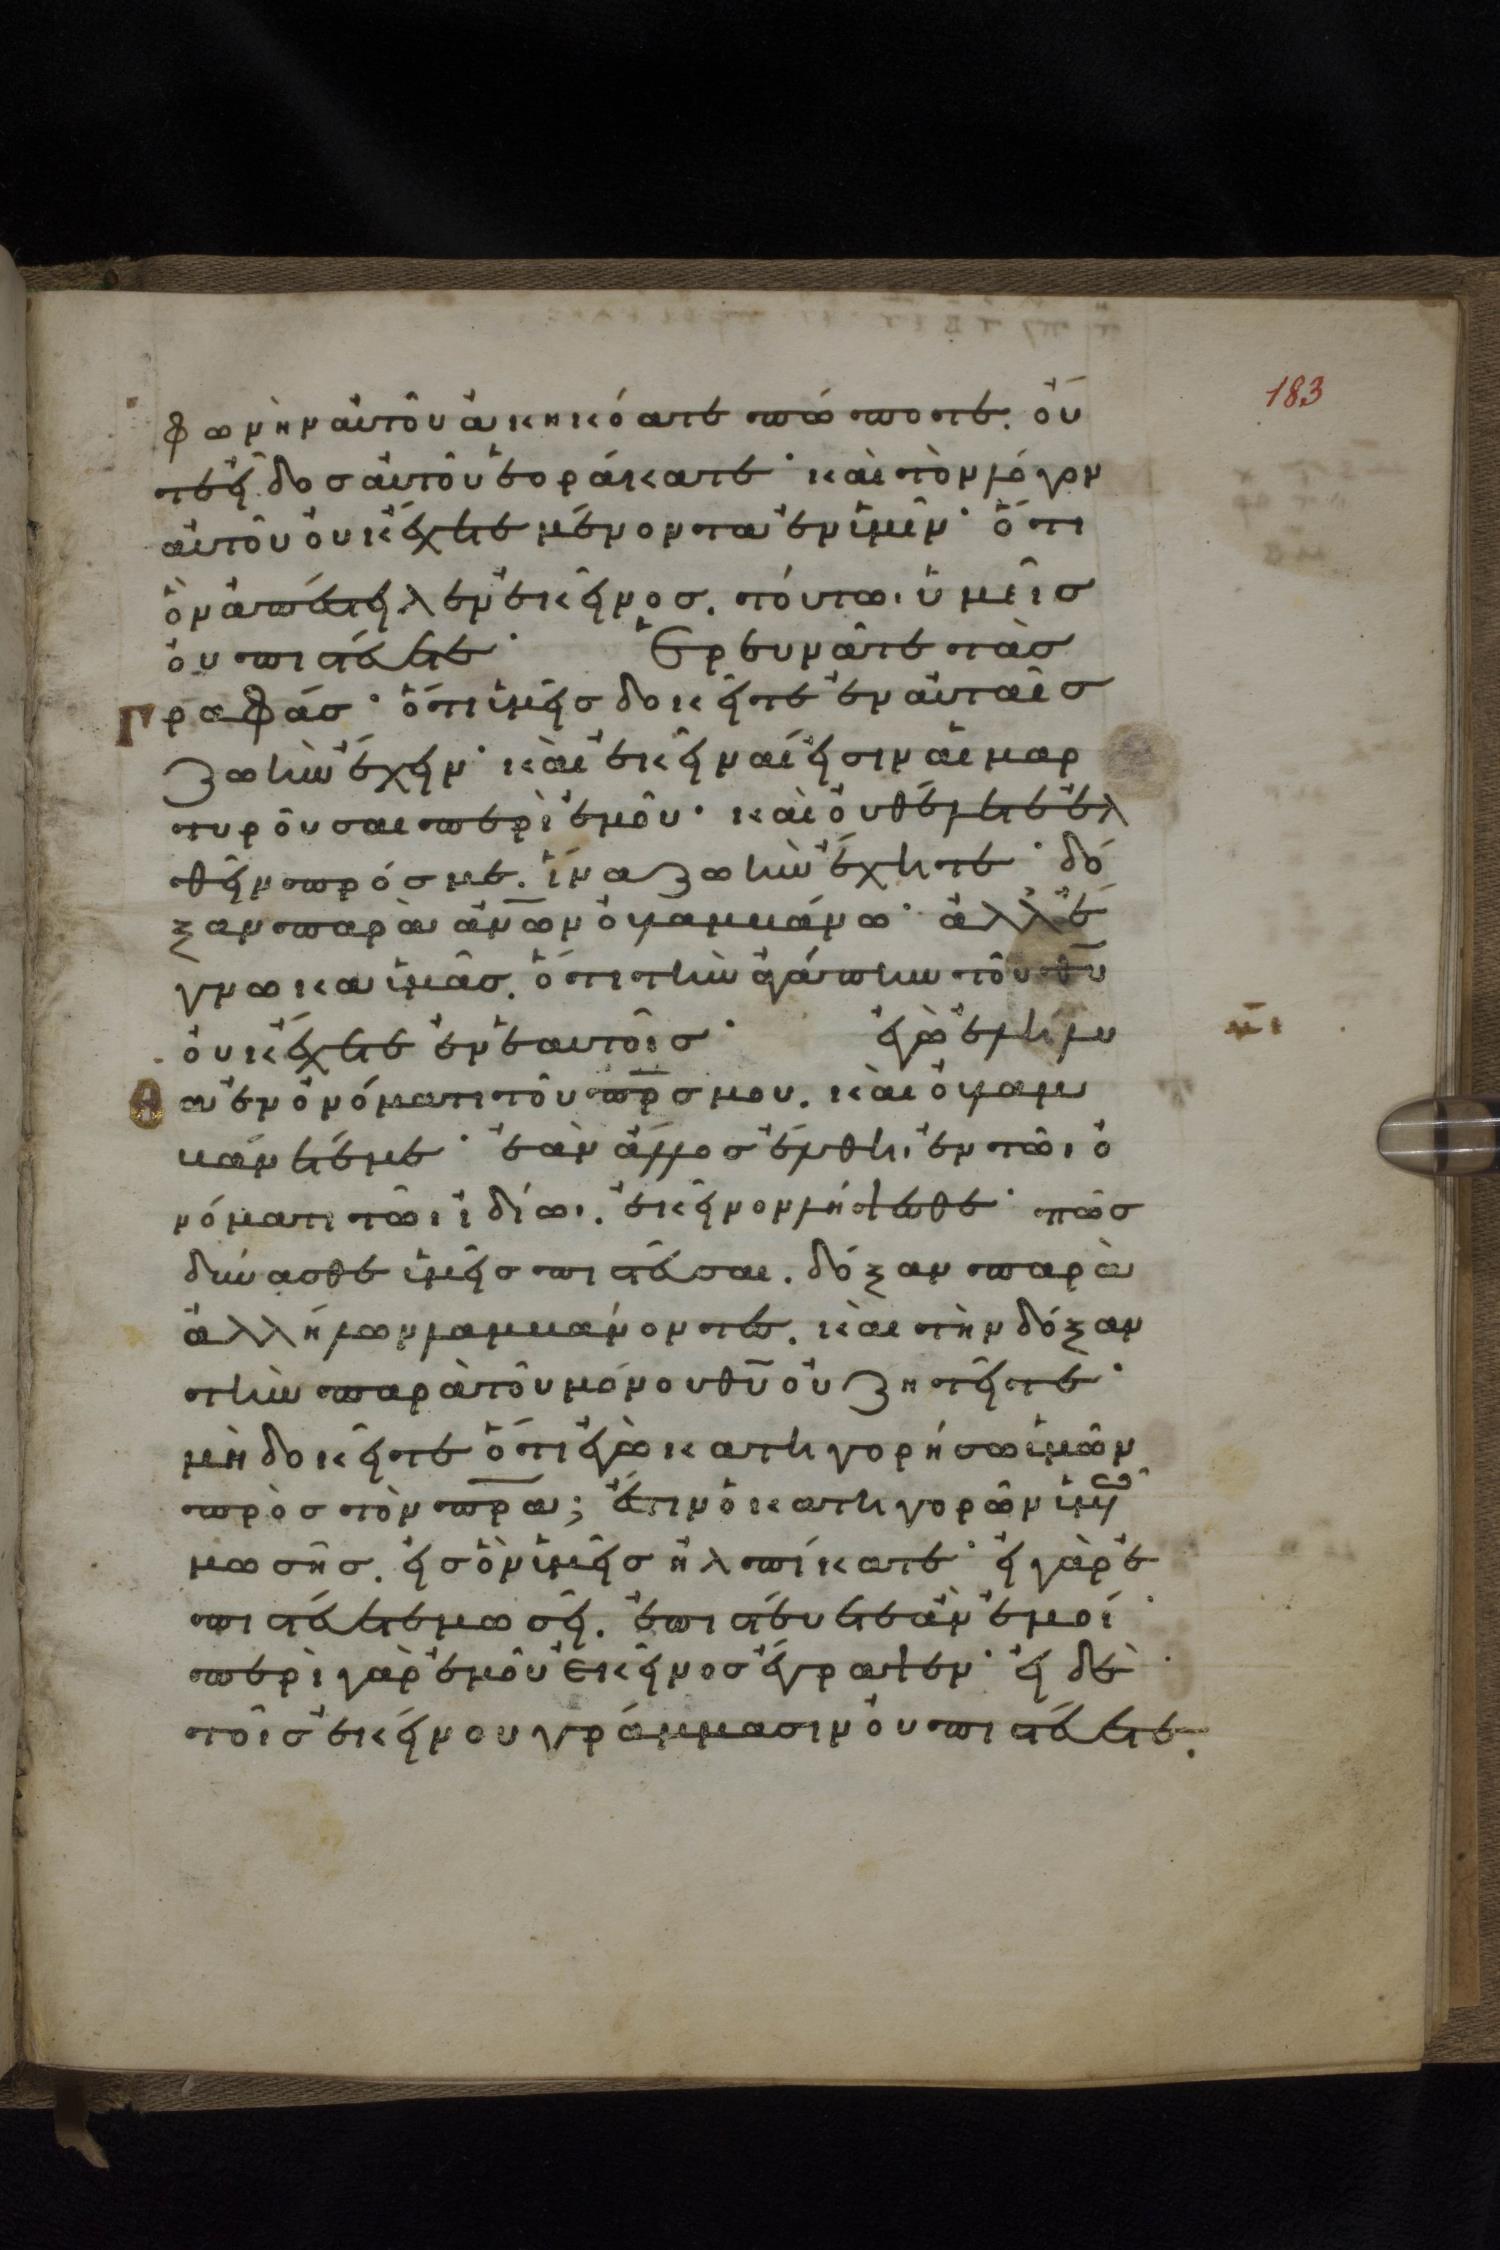 183
φωνὴν αὐτοῦ ἀκηκόατε πώποτε. οὔ
τε εἶδος αὐτοῦ ἑοράκατε· καὶ τὸν λόγον
αὐτοῦ οὐκ ἔχετε μένοντα ἐν ὑμῖν· ὅτι
ὃν ἀπέστειλεν ἐκεῖνος. τούτωι ὑμεῖς
οὐ πιστεύετε· Ἐρευνᾶτε τὰς
γραφάς· ὅτι ὑμεῖς δοκεῖτε ἐν αὐταῖς
ζωὴν ἔχειν· καὶ ἐκεῖναί εἰσιν αἱ μαρ
τυροῦσαι περὶ ἐμοῦ· καὶ οὐ θέλετε ἐλ
θεῖν πρός με. ἵνα ζωὴν ἔχητε· δό
ξαν παρὰ ἀν̅ω̅ν οὐ λαμβάνω· ἀλλ' ἔ
γνωκα ὑμᾶς. ὅτι τὴν ἀγάπην τοῦ θ̅υ̅
οὐκ ἔχετε ἐν ἑαυτοῖς· ἐγὼ ἐλήλυ
θα ἐν ὀνόματι τοῦ π̅ρ̅ς μου. καὶ οὐ λαμ
βάνετέ με· ἐὰν ἄλλος ἔλθη, ἐν τῶι ὀ
νόματι τῶι ἰδίωι. ἐκεῖνον λήψεσθε· πῶς
δύνασθε ὑμεῖς πιστεῦσαι. δόξαν παρὰ
ἀλλήλων λαμβάνοντες. καὶ τὴν δόξαν
τὴν παρὰ τοῦ μόνου θ̅υ̅ οὐ ζητεῖτε·
μὴ δοκεῖτε ὅτι ἐγὼ κατηγορήσω ὑμῶν
πρὸς τὸν π̅ρ̅α; ἔστιν ὁ κατηγορῶν ὑμῶν
μωσῆς. εἰς ὃν ὑμεῖς ἠλπίκατε· εἰ γὰρ ἐ
πιστεύετε μωσεῖ. ἐπιστεύετε ἂν ἐμοί·
περὶ γὰρ ἐμοῦ ἐκεῖνος ἔγραψεν· εἰ δὲ
τοῖς ἐκείνου γράμμασιν οὐ πιστεύετε.